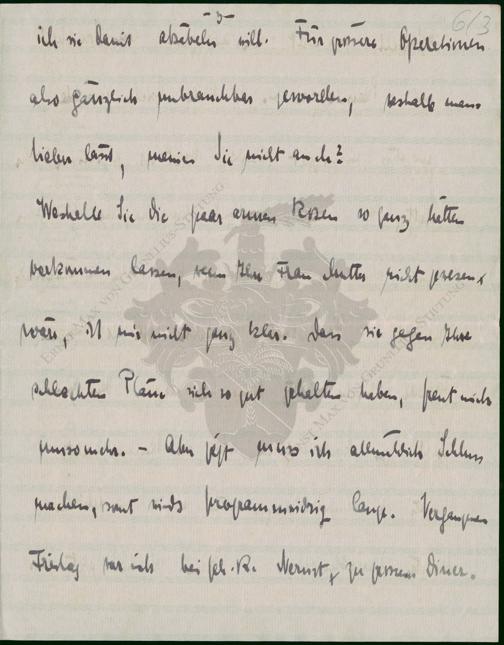 - 3 -
6/3
ich sie damit absäbeln will. Für grössere Operationen
also gänzlich unbrauchbar geworden, weshalb man's
lieber lässt, meinen Sie nicht auch?
Weshalb Sie die paar armen Rosen so ganz hätten
verkommen lassen, wenn Ihre Frau Mutter nicht gewesen
wäre, ist mir nicht ganz klar. Dass sie gegen Ihre
schlechten Pläne sich so gut gehalten haben, freut mich
umsomehr. – Aber jetzt muss ich allmählich Schluss
machen, sonst wird's programmwidrig lang. Vergangenen
Freitag war ich bei Geh. R. Nernst zu grossem Diner.
ERNST-MAX VON GRUNELIUS-STIFTUNG
ERNST-MAX VON GRUNELIUS-STIFTUNG